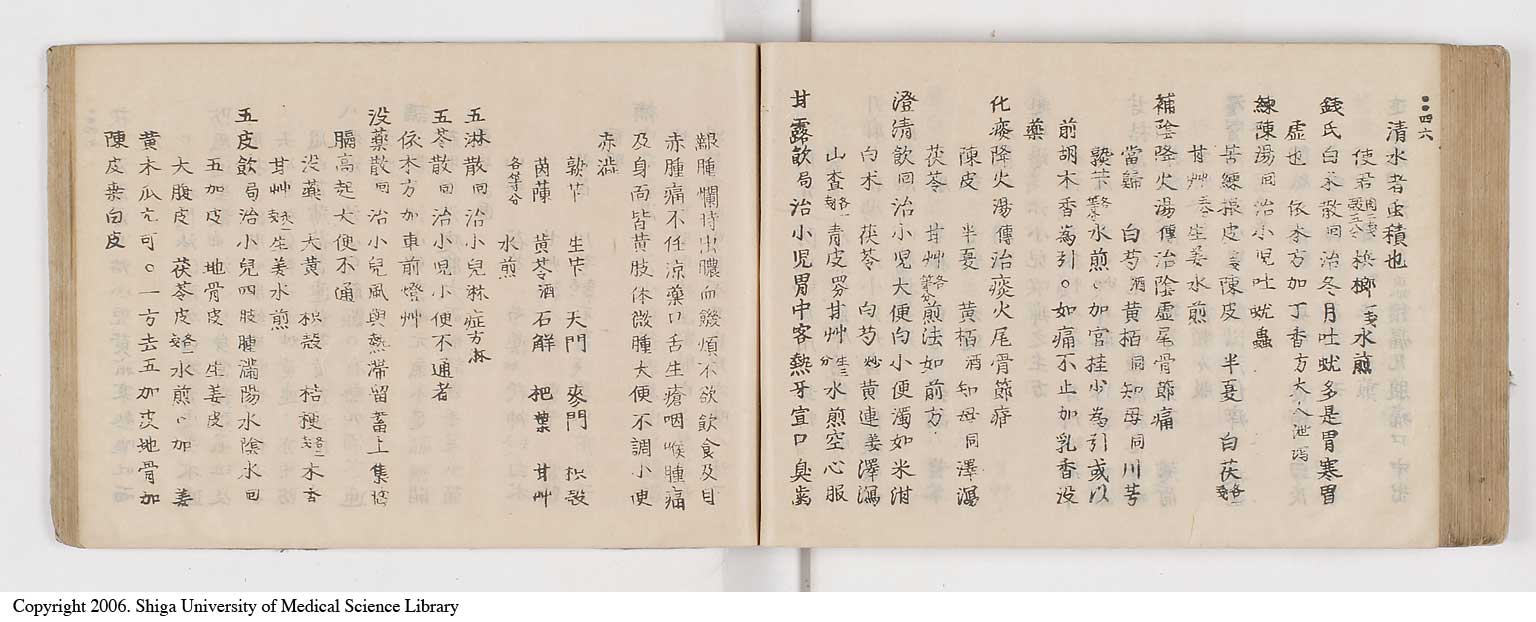 二四六
清水者虫積也
使君 檳榔 水煎
錢氏白朮散同治冬月吐蚘多是胃寒胃
虚也依本方加丁香方大人泄瀉
練陳湯同治小児吐蚘蟲
苦練根皮 陳皮 半夏 白茯
甘艸 生姜水煎
補陰降火湯傳治陰虚尾骨節痛
當歸 白芍酒 黄栢同 知母同 川芎
熟芐 水煎○加官桂少為引或以
前胡木香為引○如痛不止加乳香没
藥
化痰降火湯傳治痰火尾骨節痛
陳皮 半夏 黄栢酒 知母同 澤瀉
茯苓 甘艸 煎法如前方
澄清飲同治小児大便白小便濁如米泔
白朮 茯苓 白芍炒 黄連姜 澤瀉
山査 青皮 甘艸 水煎空心服
甘露飲局治小児胃中客熱牙宣口臭齒
齦腫爛時出膿血饑煩不欲飲食及目
赤腫痛不任涼藥口舌生瘡咽喉腫痛
及身面皆黄肢体微腫大便不調小便
赤澁
熟芐 生芐 天門 麥門 枳殻
茵蔯 黄芩酒 石斛 把葉 甘艸
各等分 水煎
五淋散同治小兒淋症方淋
五苓散同治小児小便不通者
依本方加車前燈艸
没藥散同治小兒風與熱滞留蓄上集
膈高起大便不通
没藥 大黄 枳殻 桔梗 木香
甘艸 生姜水煎
五皮飲局治小兒四肢腫滿陽水陰水同
五加皮 地骨皮 生姜皮
大腹皮 茯苓皮 水煎○加姜
黄木瓜尤可○一方去五加皮地骨加
陳皮桒白皮
Copyright 2006. Shiga University of Medical Science Library